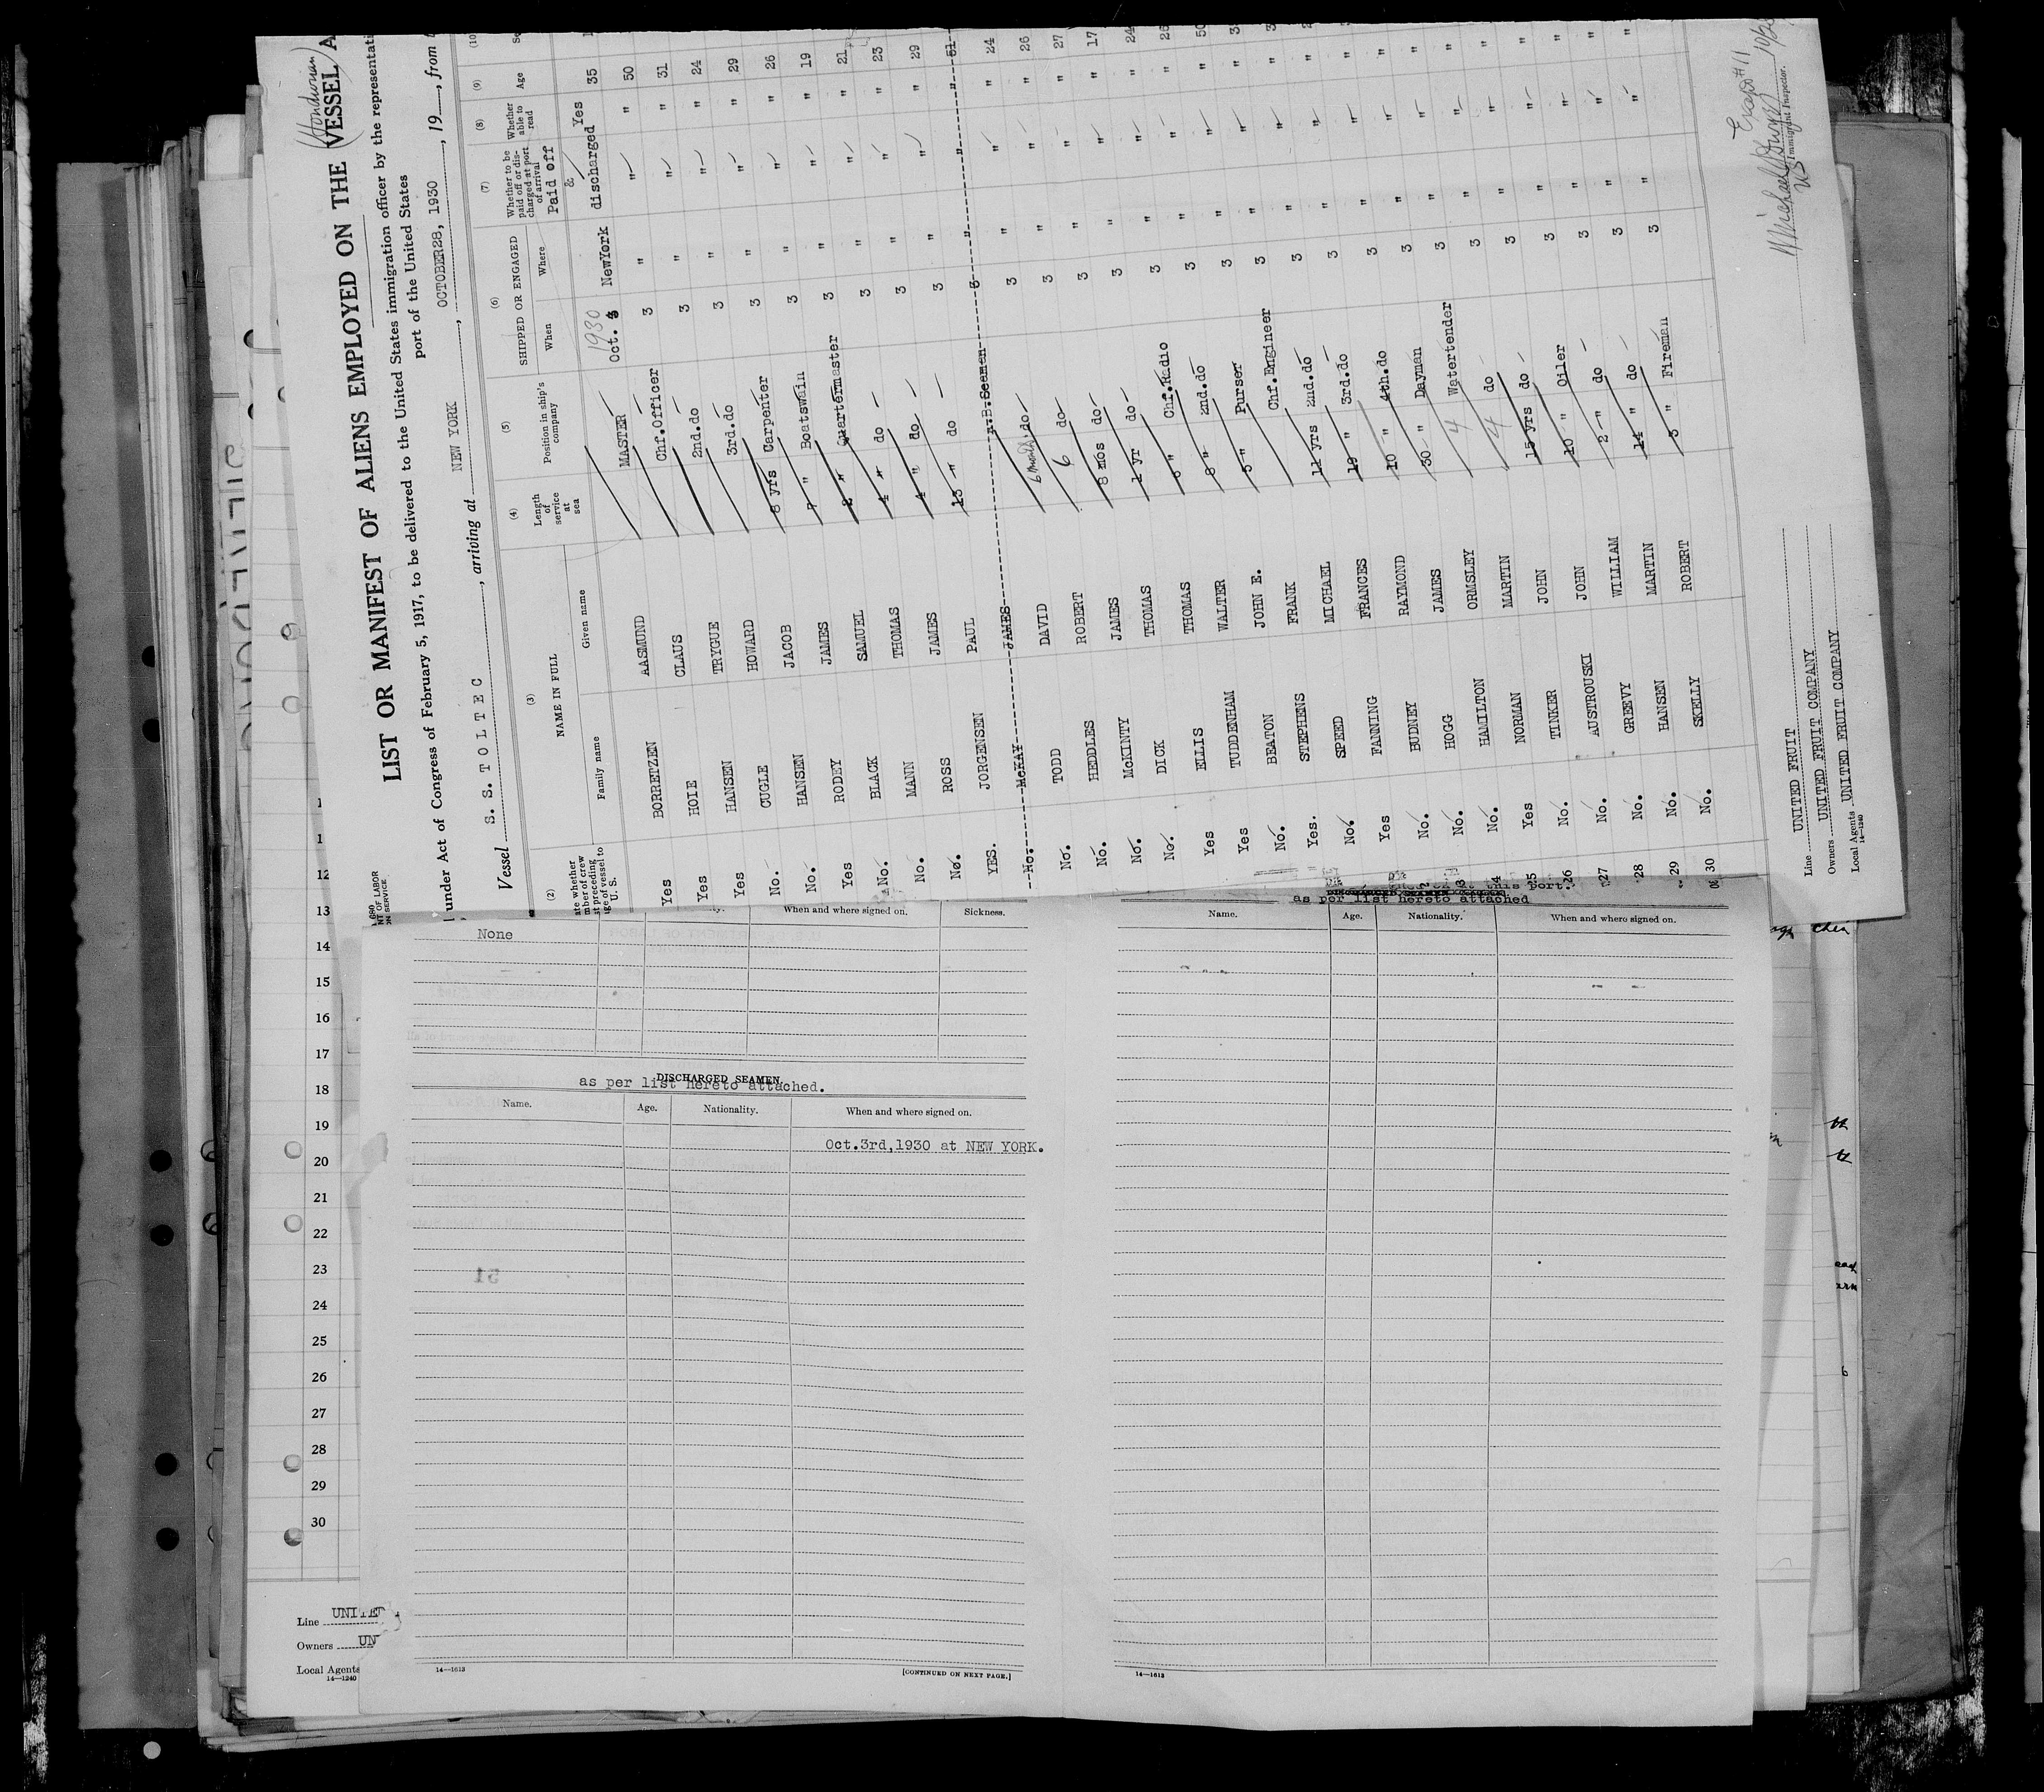 (Honduran)
LIST OR MANIFEST OF ALIENS EMPLOYED ON THE VESSEL A
under Act of Congress of February 5, 1917, to be delivered to the United States immigration officer by the representati
port of the United States
Vessel S. S. TOLTEC, arriving at NEW YORK, OCTOBER28, 1930, 19, from
(2) (3) (4) (5) (6) (7) (8) (9) (10
NAME IN FULL Length of service at sea Position in ship's company SHIPPED OR ENGAGED Whether to be paid off or discharged at port of arrival Whether able to read Age
Family name Given name When Where
1930 Paid off &
Oct. 3 NewYork discharged Yes 35
Yes BORRETZEN AASMUND MASTER 3 " " " 50
Yes HOIE CLAUS Chf.Officer 3 " " " 31
Yes HANSEN TRYGUE 2nd.do 3 " " " 24
No. CUGLE HOWARD 3rd.do 3 " " " 29
No. HANSEN JACOB 8 yrs Carpenter 3 " " " 26
Yes RODEY JAMES " Boatswain 3 " " " 19
No. BLACK SAMUEL 2 " Quartermaster 3 " " " 21
No. MANN THOMAS 4 " do 3 " " " 23
No. ROSS JAMES 4 " do 3 " " " 29
YES. JORGENSEN PAUL 13 " do 3 " " " 51
No. McKAY JAMES A.B.Seaman 3 " " " 24
No. TODD DAVID 6 months do 3 " " " 26
No. HEDDLES ROBERT 6 do 3 " " " 27
No. McKINTY JAMES 8 mos do 3 " " " 17
No. DICK THOMAS 1 yr do 3 " " " 24
Yes ELLIS THOMAS " Chf.Radio 3 " " " 26
Yes TUDDENHAM WALTER 8 " 2nd.do 3 " " " 50
No. BEATON JOHN E. 5 " Purser 3 " " "
Yes. STEPHENS FRANK Chf.Engineer 3 " " "
No. SPEED MICHAEL 11 yrs 2nd.do 3 " " "
Yes FANNING FRANCES 19 " 3rd.do 3 " " "
No. BUDNEY RAYMOND 10 " 4th.do 3 " " "
No. HOGG JAMES 30 " Dayman 3 " " "
No. HAMILTON ORMSLEY 4 Watertender 3 " " "
25 Yes NORMAN MARTIN 4 do 3 " " "
26 No. TINKER JOHN 15 yrs do 3 " " "
27 No. AUSTROUSKI JOHN 10 " Oiler 3 " " "
28 No. GREEVY WILLIAM 2 " do 3 " " "
29 No. HANSEN MARTIN 14 " do 3 " " "
30 No. SKELLY ROBERT 3 " Fireman 3 " " "
Line UNITED FRUIT
Owners UNITED FRUIT COMPANY
Local Agents UNITED FRUIT COMPANY
14—1240
Immigrant Inspector.
12
13
14
15
16
17
18
19
20
21
22
23
24
25
26
27
28
29
30
When and where signed on. Sickness.
None
DISCHARGED SEAMEN.
as per list hereto attached.
Name. Age. Nationality. When and where signed on.
Oct.3rd,1930 at NEW YORK.
14—1613 [CONTINUED ON NEXT PAGE.]
this port.
as per list hereto attached
Name. Age. Nationality. When and where signed on.
14—1613
Line UNITED
Owners UN
Local Agents
14—1240